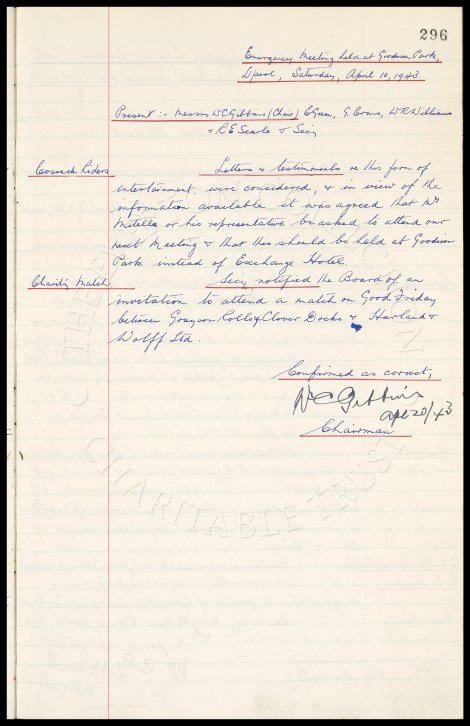 296
Emergency Meeting held at Goodison Park,
L'pool, Saturday, April 10, 1943.
Present :- Messrs W.C. Gibbins (Chair) E. Green, G. Evans, W.R. Williams
& R E Searle & Secy.
Cossack Riders Letters & testimonials re this form of
entertainment, were considered, & in view of the
information available it was agreed that Mr
or his representative be asked to attend our
next Meeting & that this should be held at Goodison
Park instead of Exchange Hotel.
Charity Match Secy notified the Board of an
invitation to attend a match on Good Friday
between Grayson Rollo & Clover Docks & Harland &
Wolff Ltd.
Confirmed as correct,
W C Gibbins
Apl 20/43
Chairman
CHARITABLE TRUST